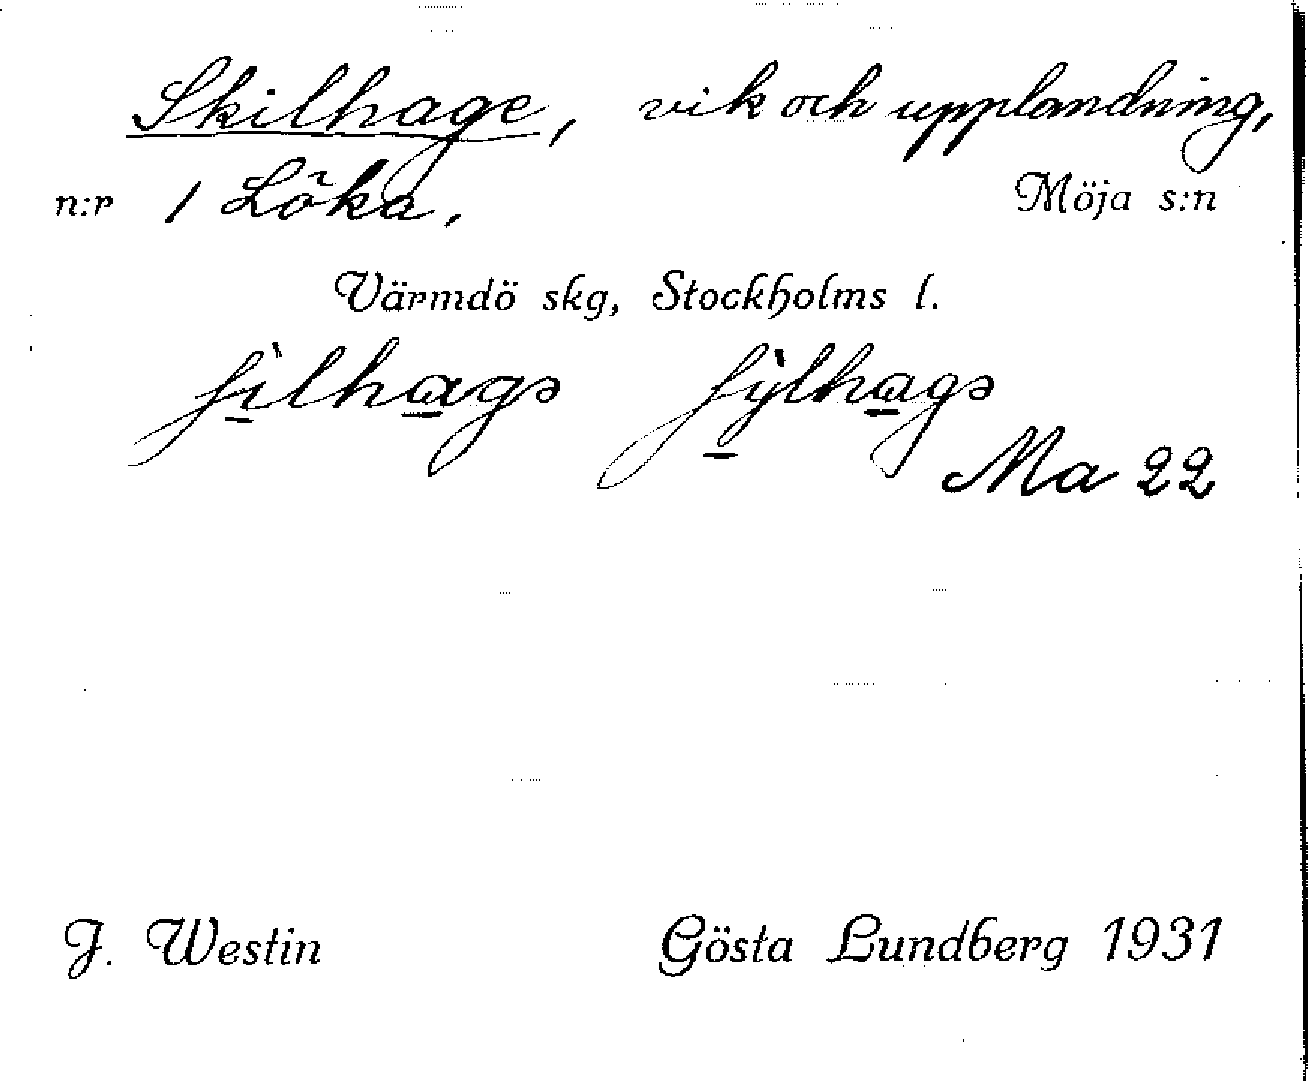 Skilhage, vik och upplandning,
n:r 1 Löka. Möja s:n
Värmdö skg, Stockholms l.
ʃìlhagə ʃỳlhagə
Ma 22
J. Westin Gösta Lundberg 1931